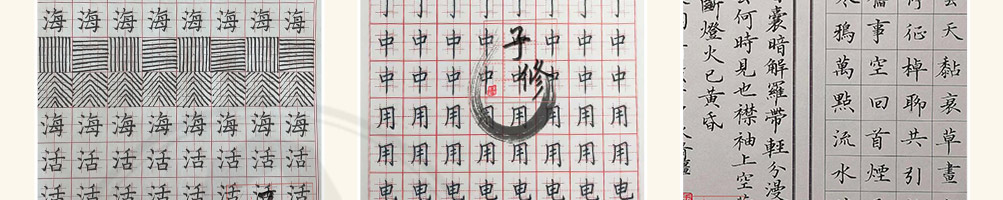 海海海海海海海海
海海海海海海海海
活活活活活活活活
活活活活活活活
中中中中中中中
中中中中中中中
用用用用用用用用
用用用用用用用用
电电电电电电电电
子修
天黏衰草畫
征棹聊共引
事空回首煙
鴉萬點流水
囊暗解羅帶輕分漫
去何時見也襟袖上空
斷燈火已黃昏